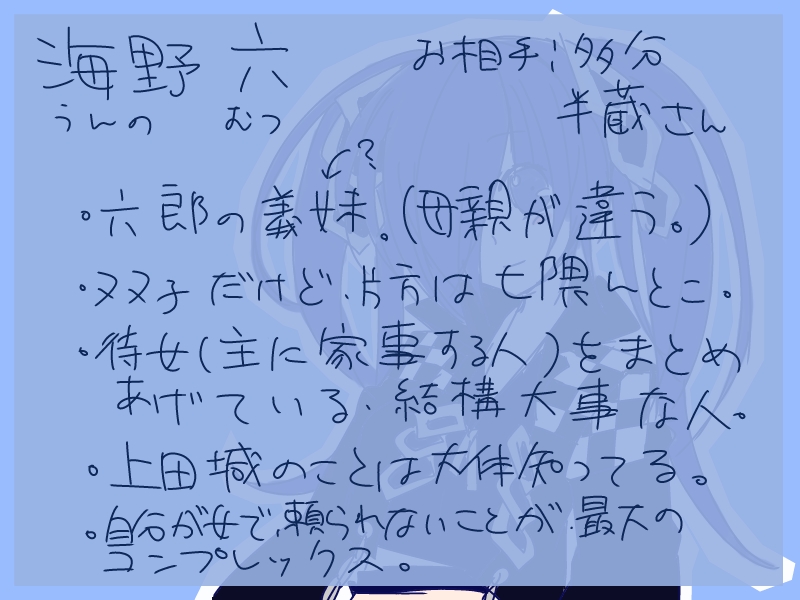 海野 六
うんの むつ
お相手:多分
半蔵さん
?
・六郎の義妹。(母親が違う。)
・双子だけど、片方は七隈んとこ。
・侍女(主に家事する人)をまとめ
あげている、結構大事な人。
・上田城のことは大体知ってる。
・自分が女で、頼られないことが、最大の
コンプレックス。